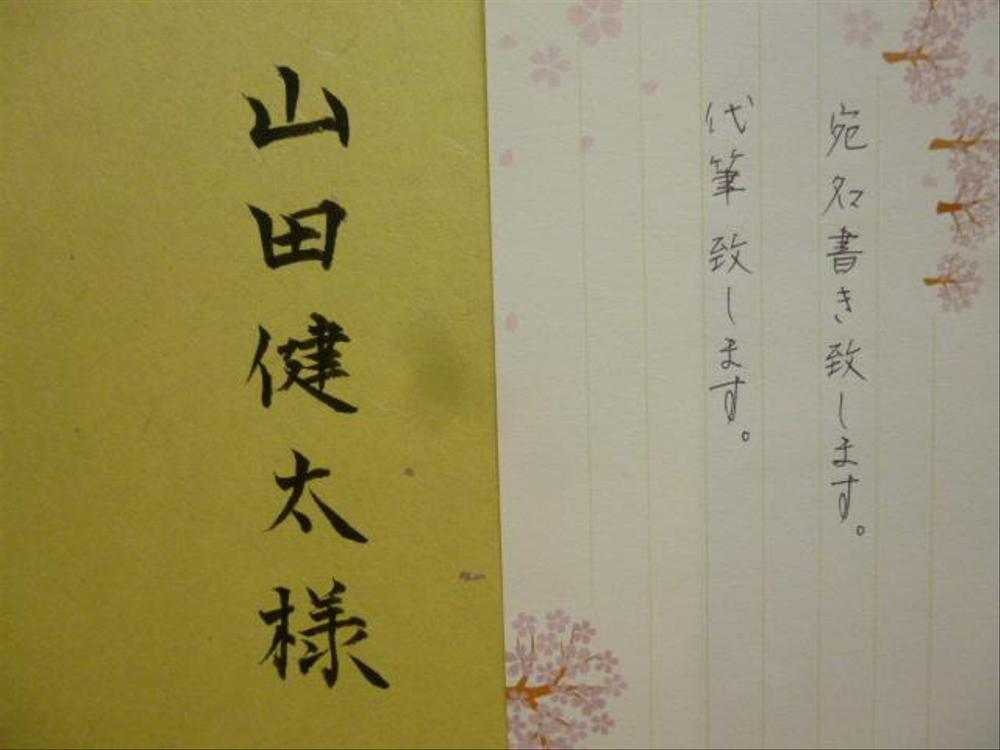 宛名書き致します。
代筆致します。
山田健太様